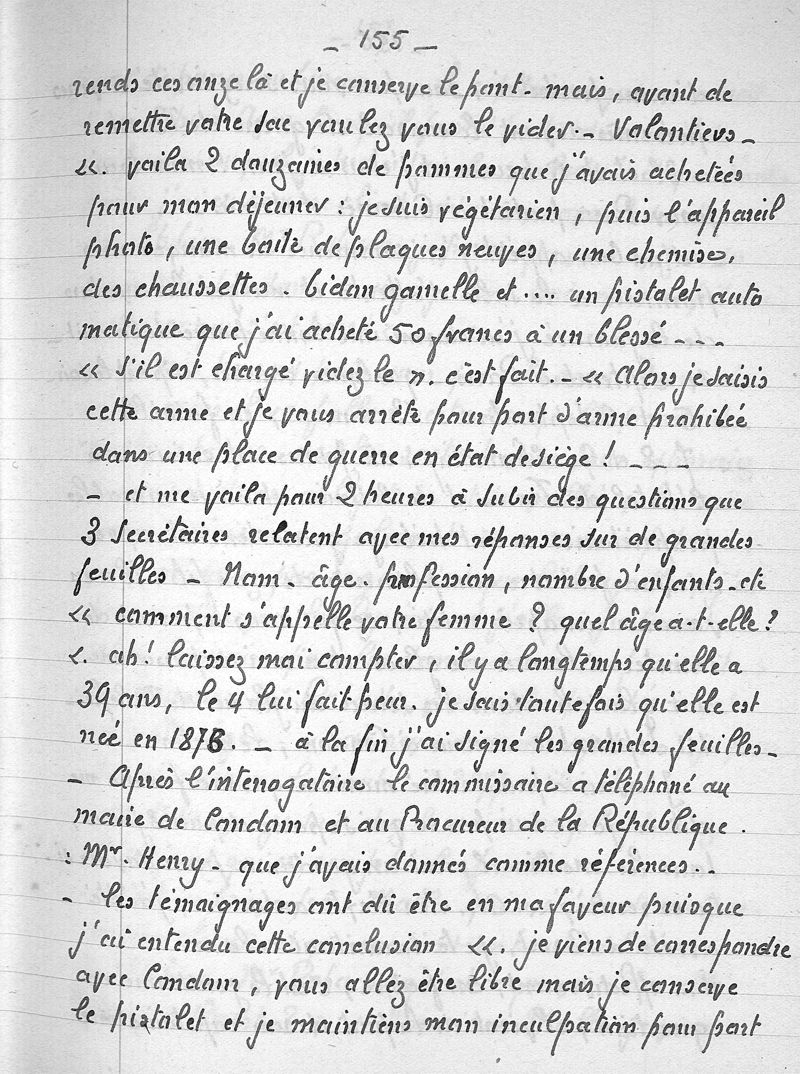 - 155 -
rends ces onze là et je conserve le pont. mais, avant de
remettre votre sac voulez vous le vider. - Volontiers -
«. voila 2 douzaines de pommes que j'avais achetées
pour mon déjeuner : je suis végétarien, puis l'appareil
photo, une boîte de plaques neuves, une chemise,
des chaussettes. bidon gamelle et .... un pistolet auto
matique que j'ai acheté 50 francs à un blessé - - -
« s'il est chargé videz le ». c'est fait. - « Alors je saisis
cette arme et je vous arrête pour port d'arme prohibée
dans une place de guerre en état de siège ! - - -
- et me voila pour 2 heures à subir des questions que
3 secrétaires relatent avec mes réponses sur de grandes
feuilles - Nom. âge. profession, nombre d'enfants. etc
« comment s'appelle votre femme ? quel âge a-t-elle ?
«. ah ! laissez moi compter, il y a longtemps qu'elle a
39 ans, le 4 lui fait peur. je sais toutefois qu'elle est
née en 1876. - à la fin j'ai signé les grandes feuilles -
- Après l'interrogatoire le commissaire a téléphoné au
maire de Condom et au Procureur de la République.
: Mr. Henry - que j'avais donnés comme références..
- les témoignages ont dû être en ma faveur puisque
j'ai entendu cette conclusion «. je viens de correspondre
avec Condom, vous allez être libre mais je conserve
le pistolet et je maintiens mon inculpation pour port